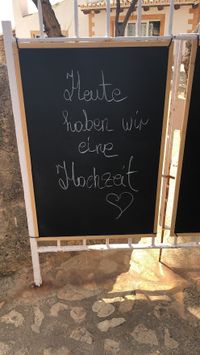 Heute
haben wir
eine
Hochzeit